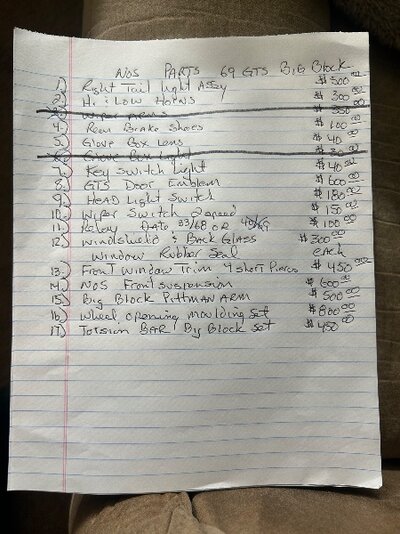 NOS PARTS 69 GTS Big Block
1.) Right Tail Light Assy $500.00
2.) Hi & Low Horns $300.00
3.) Wiper Arms $350.00
4.) Rear Brake Shoes $100.00
5.) Glove Box Lens $40.00
6.) Glove Box Light
7.) Key Switch Light $40.00
8.) GTS Door Emblem $600.00
9.) HEAD Light Switch $180.00
10.) Wiper Switch 2 speed $150.00
11.) Relay Date 33/68 OR $100.00
12.) Windshield & Back Glass $300.00
Window Rubber Seal each
13.) Front Window Trim 4 short Pieces $450.00
14.) NOS Front suspension $600.00
15.) Big Block Pittman ARM $500.00
16.) Wheel opening moulding set $800.00
17.) Torsion BAR Big Block set $450.00